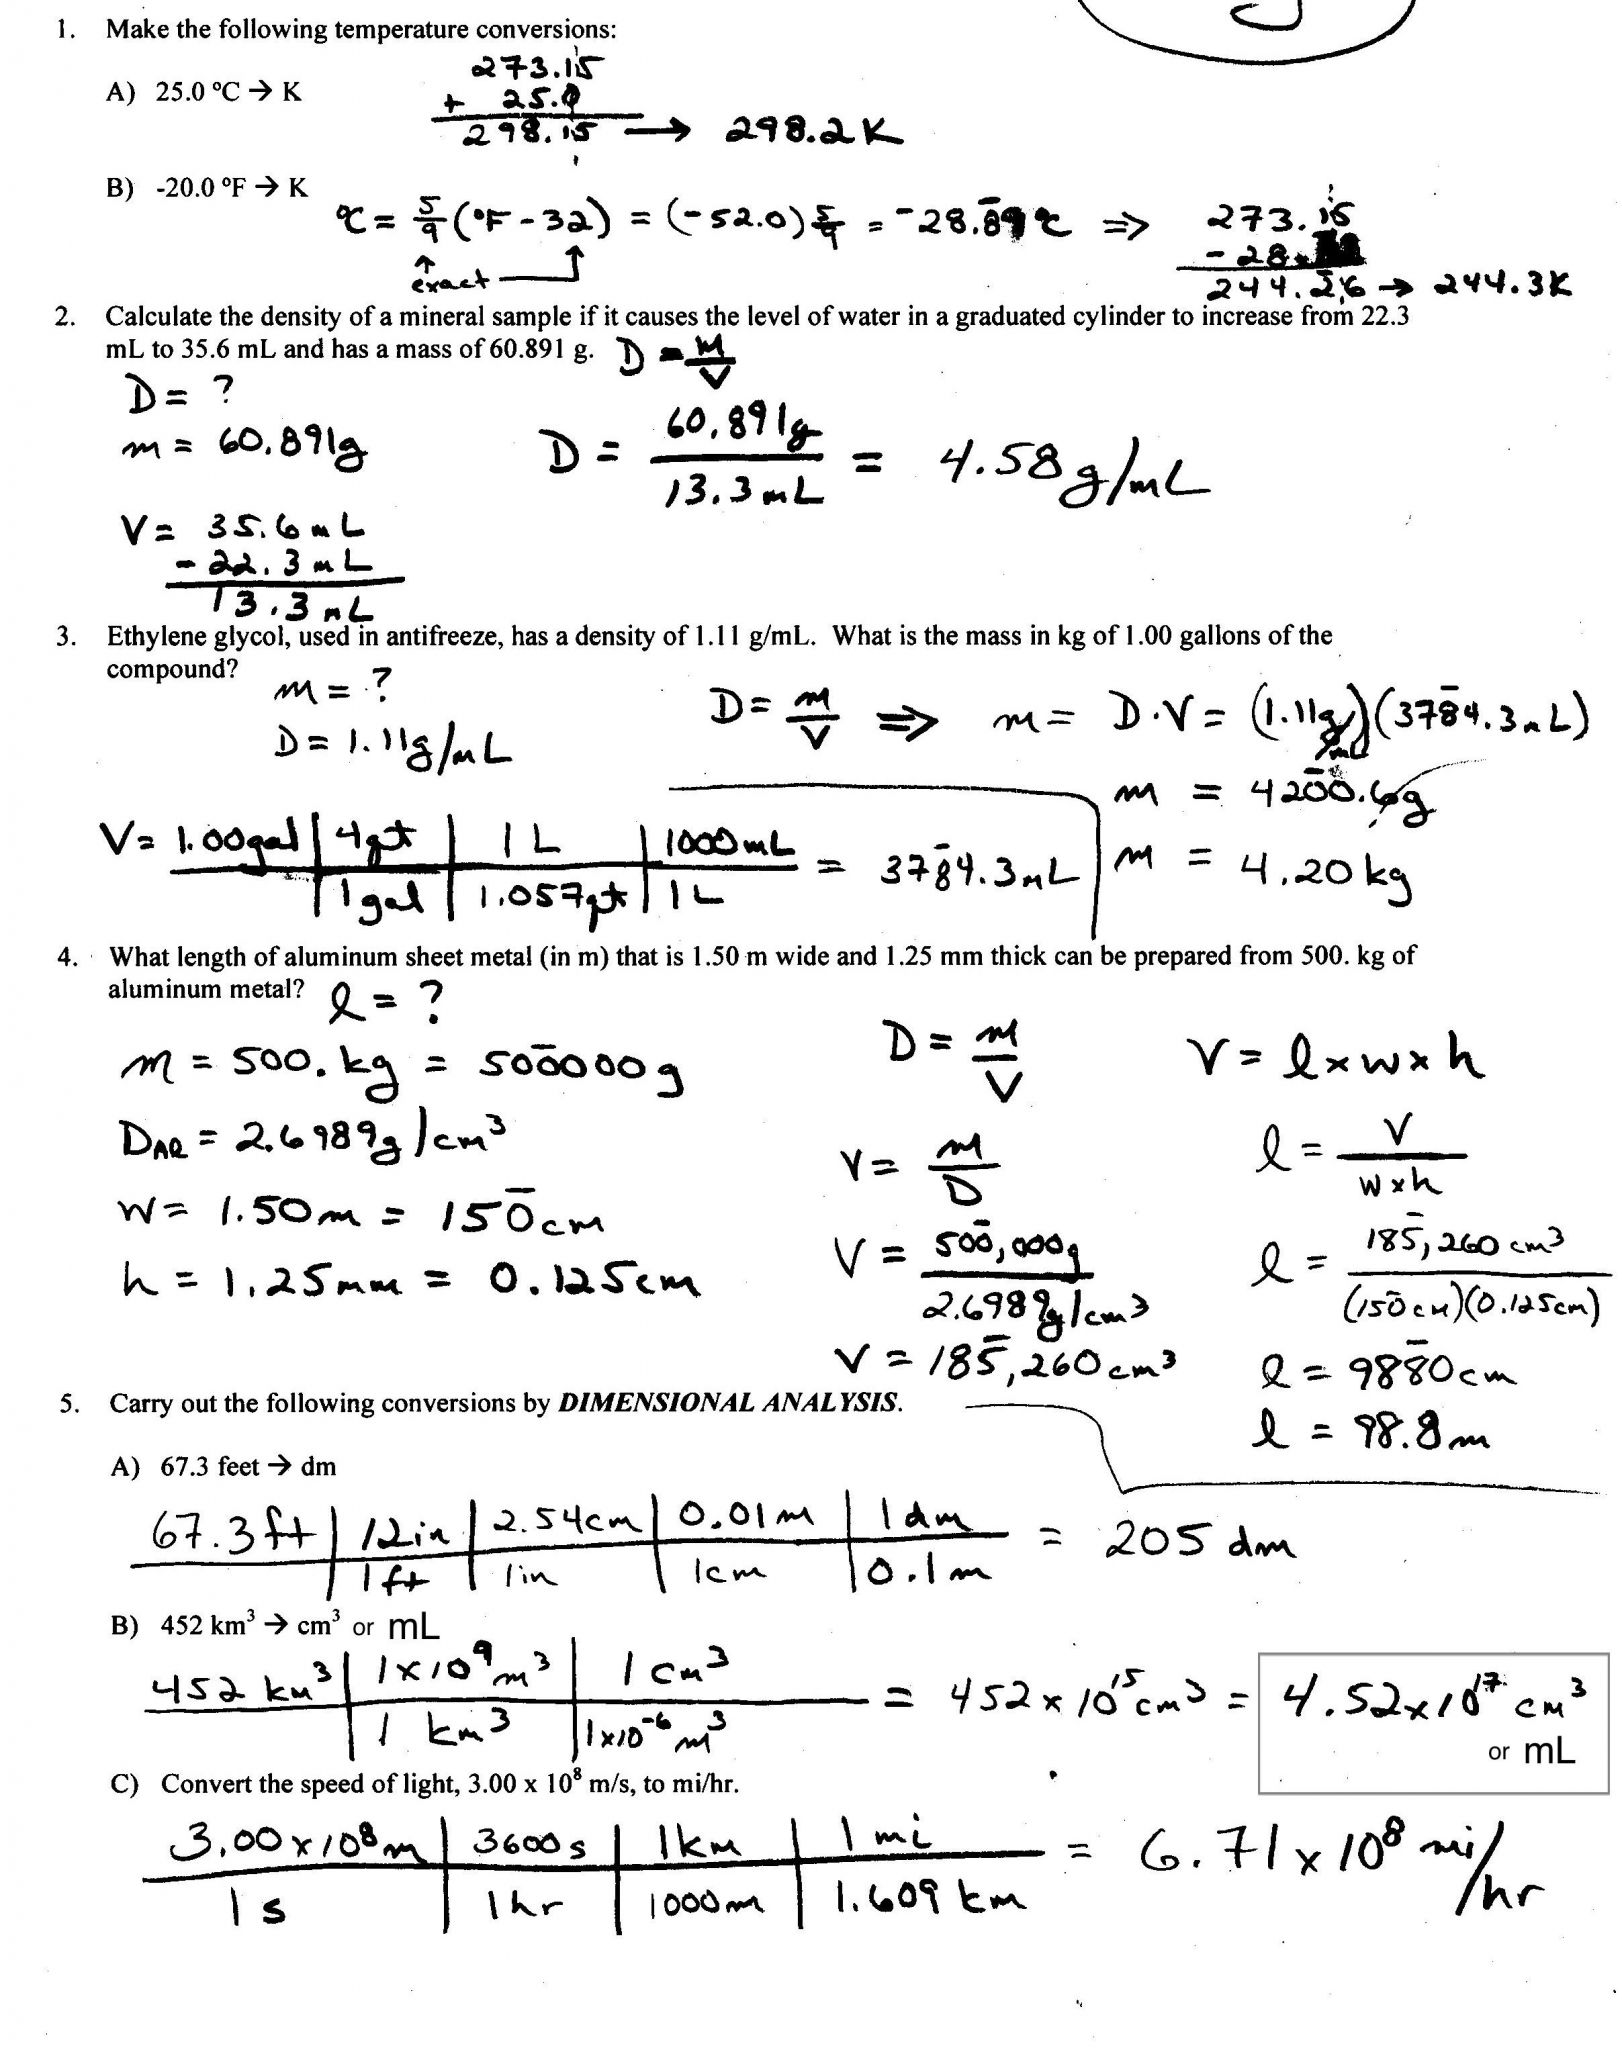 1. Make the following temperature conversions:
273.15
A) 25.0 ºC → K
+ 25.0
298.15 → 298.2K
B) -20.0 ºF → K
ºC = 5/9 (ºF - 32) = (-52.0) 5/9 = -28.89ºC ⇒ 273.15
- 28.
exact
244.26 → 244.3K
2. Calculate the density of a mineral sample if it causes the level of water in a graduated cylinder to increase from 22.3
mL to 35.6 mL and has a mass of 60.891 g. D = m/V
D = ?
m = 60.891g
D = 60.891g / 13.3mL = 4.58g/mL
V = 35.6mL
- 22.3mL
13.3mL
3. Ethylene glycol, used in antifreeze, has a density of 1.11 g/mL. What is the mass in kg of 1.00 gallons of the
compound?
m = ?
D = m/V ⇒ m = D·V = (1.11g/mL)(3784.3mL)
D = 1.11g/mL
m = 4200.6g
V = 1.00gal | 4qt | 1L | 1000mL = 3784.3mL
1gal | 1.057qt | 1L
m = 4.20kg
4. What length of aluminum sheet metal (in m) that is 1.50 m wide and 1.25 mm thick can be prepared from 500. kg of
aluminum metal? l = ?
D = m/V
V = l×w×h
m = 500. kg = 500000g
DAl = 2.6989g/cm³
V = m/D
l = V / w×h
w = 1.50m = 150cm
V = 500,000g / 2.6989g/cm³
l = 185,260cm³ / (150cm)(0.125cm)
h = 1.25mm = 0.125cm
V = 185,260cm³
l = 9880cm
l = 98.8m
5. Carry out the following conversions by DIMENSIONAL ANALYSIS.
A) 67.3 feet → dm
67.3ft | 12in | 2.54cm | 0.01m | 1dm = 205 dm
1ft | 1in | 1cm | 0.1m
B) 452 km³ → cm³ or mL
452 km³ | 1×10⁹m³ | 1cm³ = 452×10¹⁵cm³ = 4.52×10¹⁷cm³
1 km³ | 1×10⁻⁶m³
or mL
C) Convert the speed of light, 3.00 x 10⁸ m/s, to mi/hr.
3.00×10⁸m | 3600s | 1km | 1mi = 6.71×10⁸ mi/hr
1s | 1hr | 1000m | 1.609km